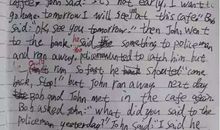 later John said: "It's not early, I want to
go home. tomorrow I will see Bob, this cafe" Bob
said: "OK see you tomorrow." then John went
to the bank said something to policeman
and ran away, policeman wanted to catch him but
can't run so fast, he shouted "come
back, Stop!" but John ran away next day
Bob and John met in the cafe again
Bob asked John: "What did you said to the
policeman yesterday?" John said: "I said he